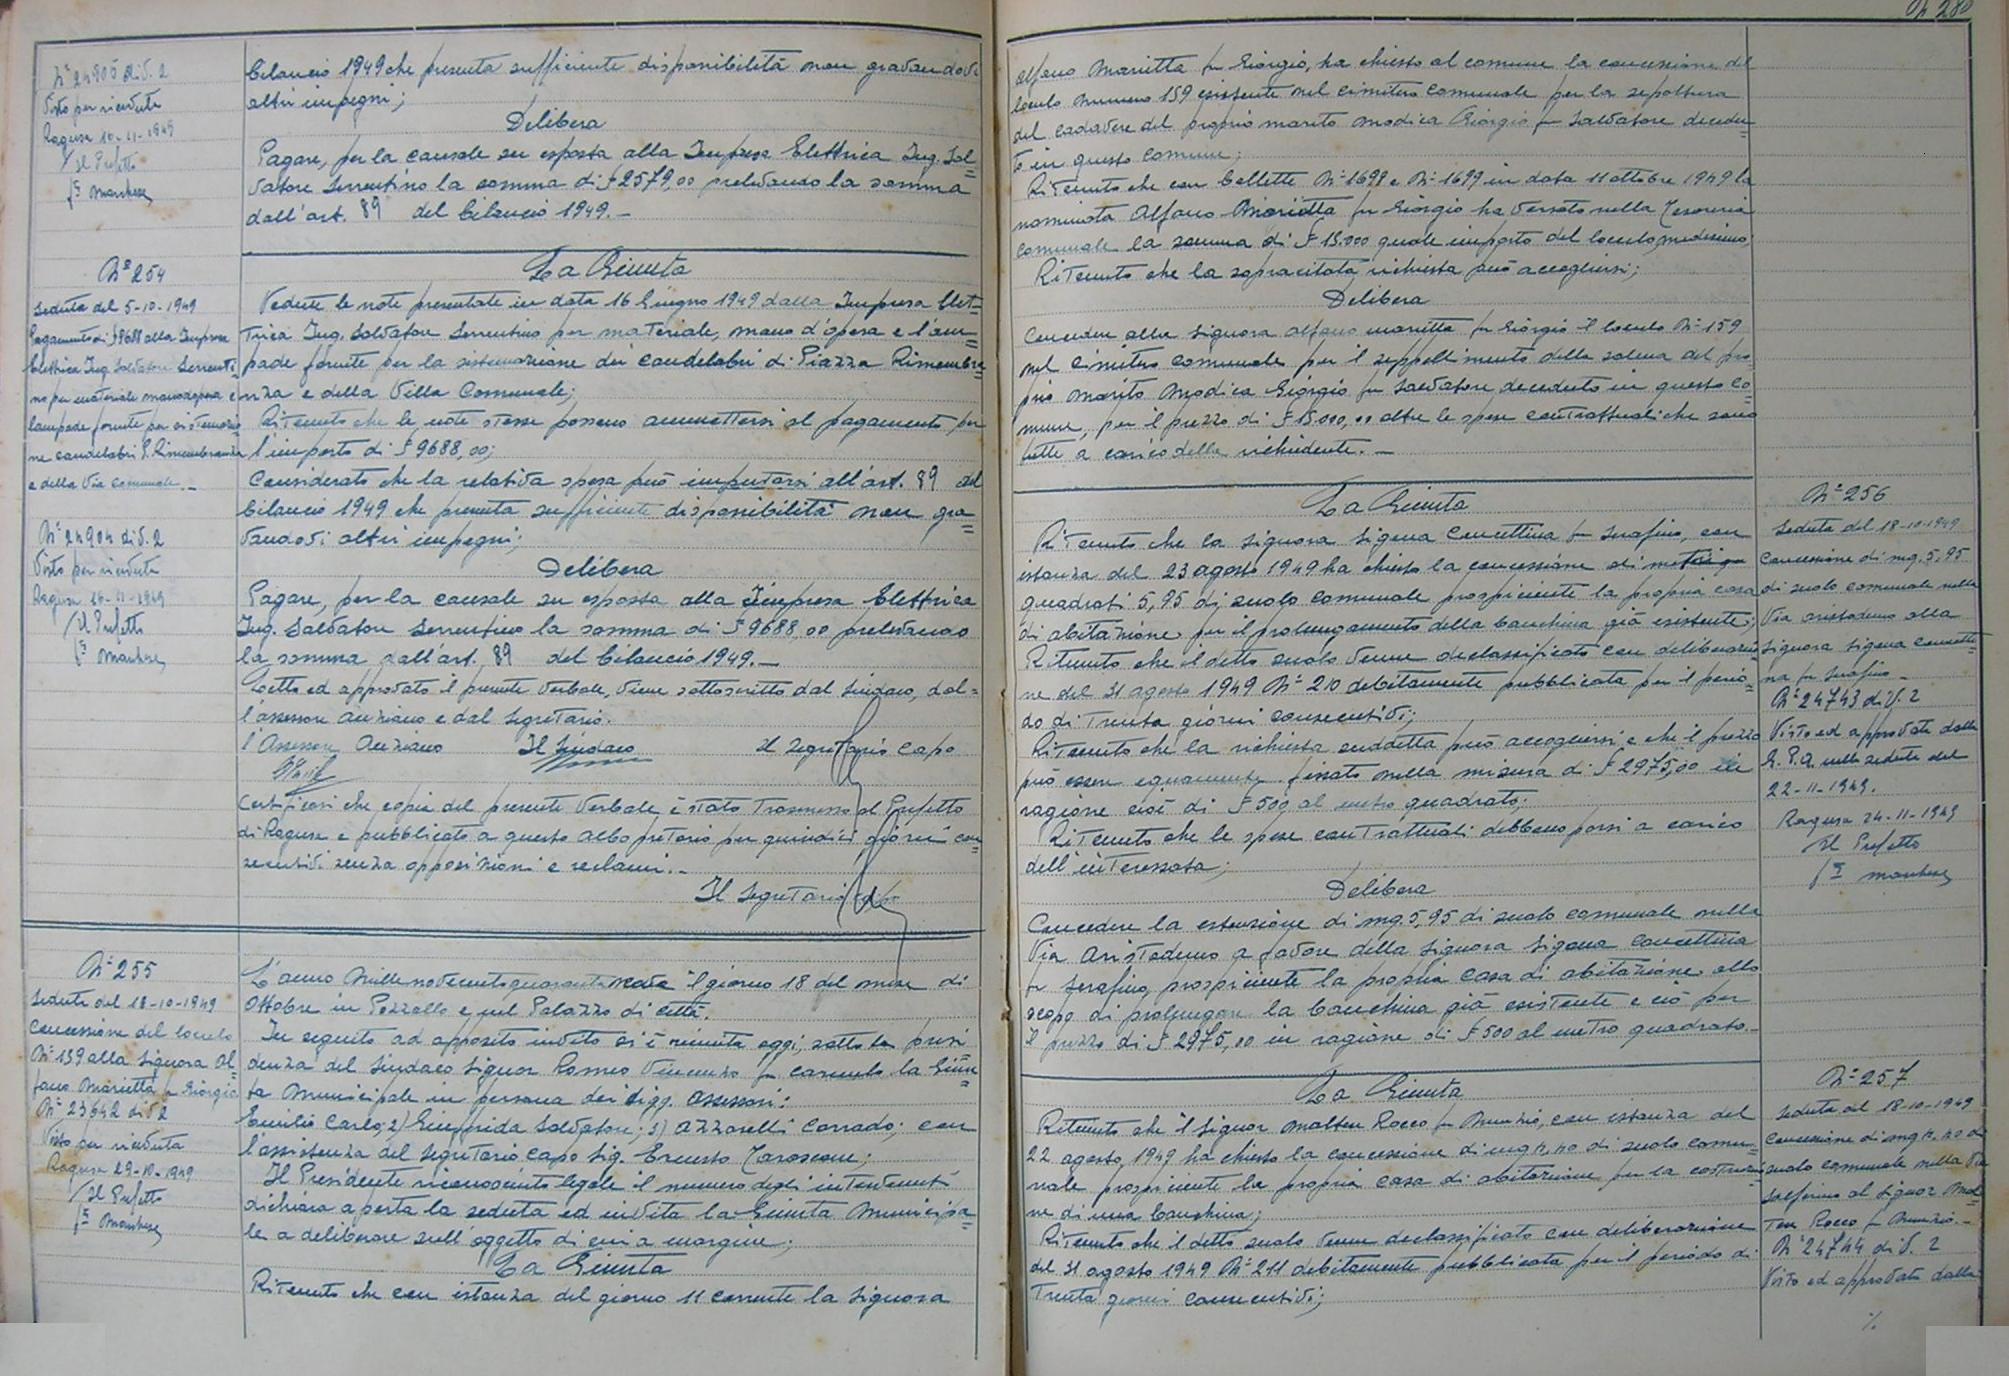 N° 24905 di V. 2
Visto per ricevuta
Ragusa 10-11-1949
Il Prefetto
f.to Marchese
bilancio 1949 che presenta sufficiente disponibilità non gravandovi
altri impegni;
Delibera
Pagare, per la causale su esposta alla Impresa Elettrica Ing. Sal=
vatore Serrentino la somma di £ 2579,00 prelevando la somma
dall'art. 89 del bilancio 1949.-
N° 254
Seduta del 5-10-1949
Pagamento di £ 9688 alla Impresa
Elettrica Ing. Salvatore Serrenti=
no per materiale manodopera e
lampade fornite per sistemazio
ne candelabri P. Rimembranza
e della Via Comunale.-
N° 24904 di V. 2
Visto per ricevuta
Ragusa 16-11-1949
Il Prefetto
f.to Marchese
La Giunta
Vedute le note presentate in data 16 Giugno 1949 dalla Impresa Elet=
trica Ing. Salvatore Serrentino per materiale, mano d'opera e l'am=
pade fornite per la sistemazione dei candelabri di Piazza Rimembra=
nza e della Villa Comunale;
Ritenuto che le note stesse possono ammettersi al pagamento per
l'importo di £ 9688,00;
Considerato che la relativa spesa può imputarsi all'art. 89 del
bilancio 1949 che presenta sufficiente disponibilità non gra=
vandovi altri impegni;
Delibera
Pagare, per la causale su esposta alla Impresa Elettrica
Ing. Salvatore Serrentino la somma di £ 9688,00 prelevando
la somma dall'art. 89 del bilancio 1949.-
Letto ed approvato il presente verbale, viene sottoscritto dal Sindaco, dal=
l'assessore anziano e dal Segretario.
l'Assessore Anziano Il Sindaco Il Segretario Capo
Certificasi che copia del presente verbale è stato trasmesso al Prefetto
di Ragusa e pubblicato a questo albo pretorio per quindici giorni con=
secutivi senza opposizioni e reclami.-
Il Segretario Capo
N° 255
Seduta del 18-10-1949
Concessione del loculo
N° 159 alla Signora Al=
fano Marietta fu Giorgio
N° 23642 di V. 2
Visto per ricevuta
Ragusa 29-10-1949
Il Prefetto
f.to Marchese
L'anno millenovecentoquarantanove il giorno 18 del mese di
Ottobre in Pozzallo e nel Palazzo di città.
In seguito ad apposito invito si è riunita oggi, sotto la presi
denza del Sindaco Signor Romeo Vincenzo fu Carmelo la Giun=
ta Municipale in persona dei sigg. assessori:
Emilio Carlo; 2) Giunfrida Salvatore; 3) Azzarelli Corrado; con
l'assistenza del Segretario Capo Sig. Ernesto Tarascone;
Il Presidente riconosciuto legale il numero degli intervenuti
dichiara aperta la seduta ed invita la Giunta Municipa=
le a deliberare sull'oggetto di cui a margine;
La Giunta
Ritenuto che con istanza del giorno 11 corrente la Signora
N 280
Alfano Marietta fu Giorgio, ha chiesto al comune la concessione del
loculo numero 159 esistente nel cimitero comunale per la sepoltura
del cadavere del proprio marito Modica Giorgio fu Salvatore decedu=
to in questo comune;
Ritenuto che con bollette N° 1698 e N° 1699 in data 11 ottobre 1949 la
nominata Alfano Marietta fu Giorgio ha versato nella Tesoreria
comunale la somma di £ 15.000 quale importo del loculo medesimo;
Ritenuto che la sopracitata richiesta può accogliersi;
Delibera
Concedere alla Signora Alfano Marietta fu Giorgio il loculo N° 159
nel cimitero comunale per il seppellimento della salma del pro
prio marito Modica Giorgio fu Salvatore deceduto in questo co=
mune, per il prezzo di £ 15.000,00 oltre le spese contrattuali che sono
tutte a carico della richiedente.-
La Giunta
Ritenuto che la Signora Sigona Concettina fu Serafino, con
istanza del 23 agosto 1949 ha chiesto la concessione di metri
quadrati 5,95 di suolo comunale prospiciente la propria casa
di abitazione per il prolungamento della banchina già esistente;
Ritenuto che il detto suolo venne declassificato con deliberazio=
ne del 31 agosto 1949 N° 210 debitamente pubblicata per il perio=
do di trenta giorni consecutivi;
Ritenuto che la richiesta suddetta può accogliersi e che il prezzo
può essere equamente fissato nella misura di £ 2975,00 in
ragione cioè di £ 500 al metro quadrato;
Ritenuto che le spese contrattuali debbono porsi a carico
dell'interessata;
Delibera
Concedere la estensione di mq. 5,95 di suolo comunale nella
Via Aristodemo a favore della Signora Sigona Concettina
fu Serafino, prospiciente la propria casa di abitazione allo
scopo di prolungare la banchina già esistente e ciò per
il prezzo di £ 2975,00 in ragione di £ 500 al metro quadrato.-
N° 256
Seduta del 18-10-1949
Concessione di mq. 5,95
di suolo comunale nella
Via Aristodemo alla
Signora Sigona Concetti=
na fu Serafino.-
N° 24743 di V. 2
Visto ed approvato dalla
G. P. A. nella seduta del
22-11-1949.
Ragusa 24-11-1949
Il Prefetto
f.to Marchese
La Giunta
Ritenuto che il Signor Maltese Rocco fu Nunzio, con istanza del
22 agosto 1949 ha chiesto la concessione di mq. di suolo comu=
nale prospiciente la propria casa di abitazione per la costruzio=
ne di una banchina;
Ritenuto che il detto suolo venne declassificato con deliberazione
del 31 agosto 1949 N° 211 debitamente pubblicata per il periodo di
trenta giorni consecutivi;
N° 257
Seduta del 18-10-1949
Concessione di mq. di
suolo comunale nella Via
Solferino al Signor Mal=
tese Rocco fu Nunzio.-
N° 24744 di V. 2
Visto ed approvato dalla
%